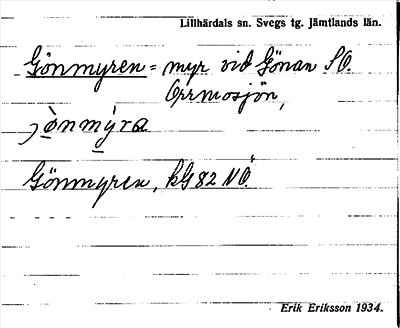 Lillhärdals sn. Svegs tg. Jämtlands län.
Gönmyren = myr vid Gönan SO.
Orrmosjön,
jònmýra
Gönmyren, kG82 NÖ.
Erik Eriksson 1934.